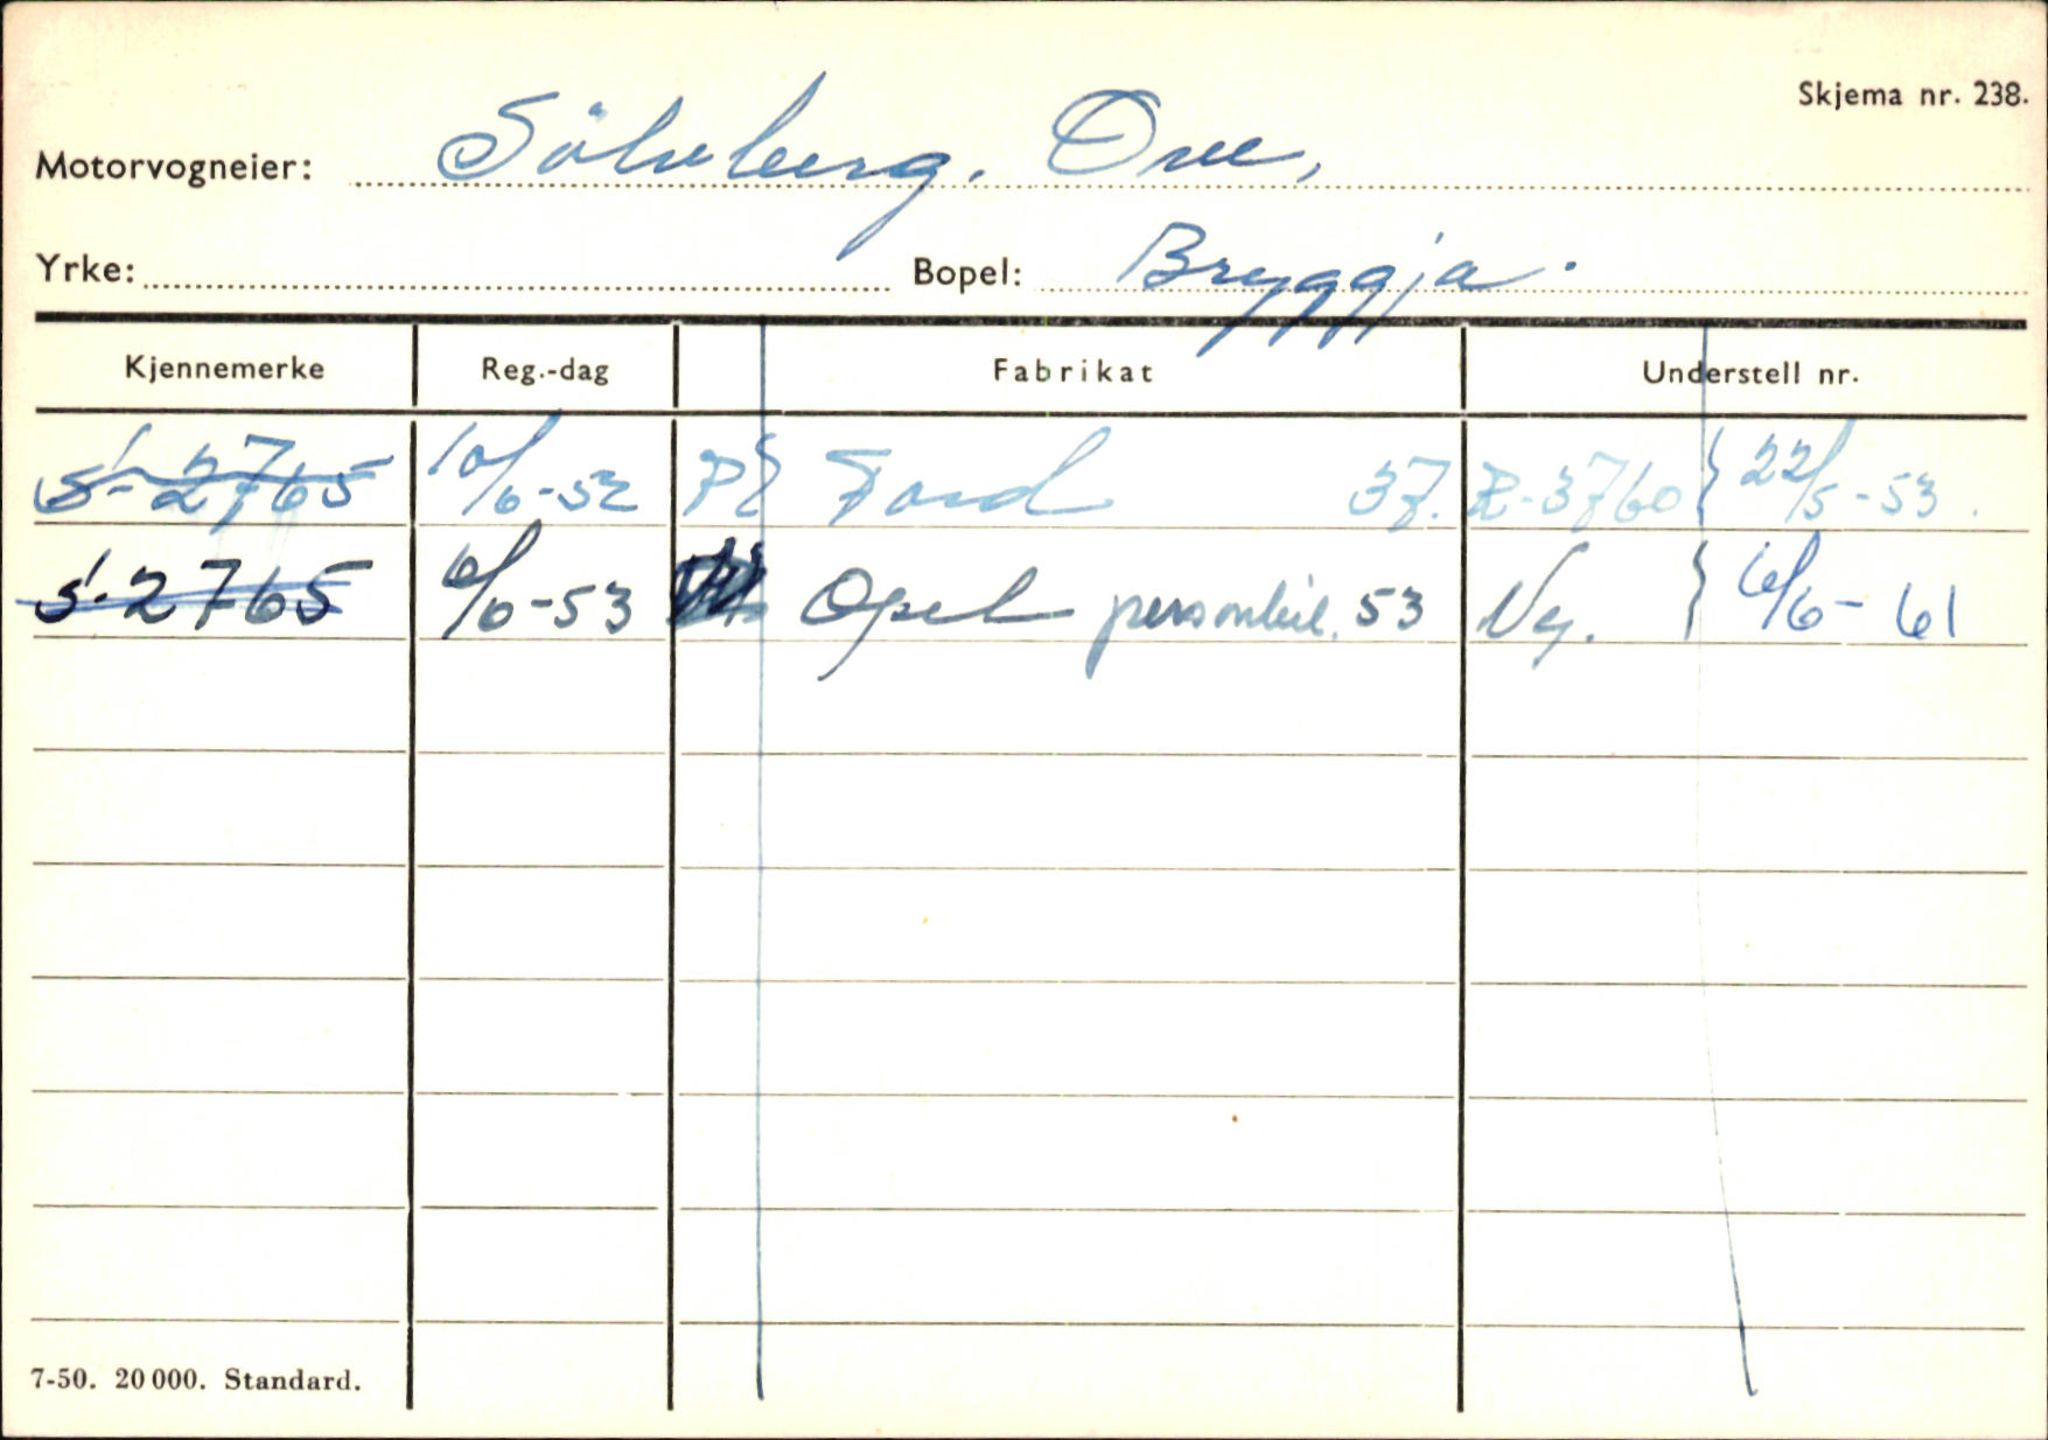 Skjema nr. 238.
Motorvogneier: Sölvberg. Ove,
Yrke: Bopel: Bryggja.
Kjennemerke Reg.-dag Fabrikat Understell nr.
S-2765 10/6-52 Ford 37. R-3760 } 22/5-53.
S-2765 6/6-53 Opel personbil. 53 Ny. } 6/6-61
7-50. 20 000. Standard.